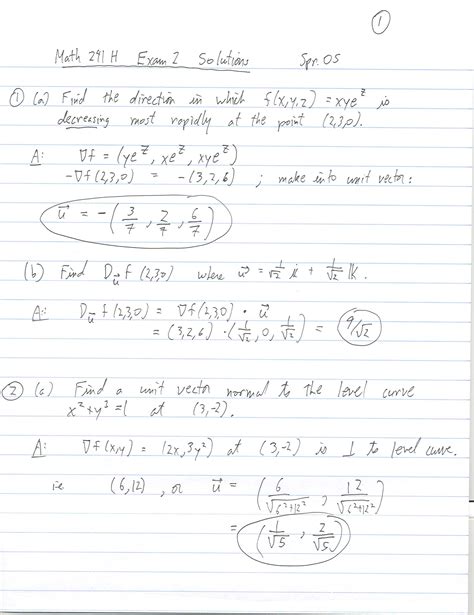 1
Math 241 H Exam 2 Solutions Spr. 05
① (a) Find the direction in which f(x,y,z) = xye^z is
decreasing most rapidly at the point (2,3,0).
A: ∇f = (ye^z, xe^z, xye^z)
-∇f(2,3,0) = -(3,2,6) ; make into unit vector:
u⃗ = -(3/7, 2/7, 6/7)
(b) Find D_u⃗ f(2,3,0) where u⃗ = 1/√2 i + 1/√2 k.
A: D_u⃗ f(2,3,0) = ∇f(2,3,0) · u⃗
= (3,2,6) · (1/√2, 0, 1/√2) = 9/√2
② (a) Find a unit vector normal to the level curve
x² + y³ = 1 at (3,-2).
A: ∇f(x,y) = (2x, 3y²) at (3,-2) is ⊥ to level curve.
ie (6,12), or u⃗ = (6/√(6²+12²), 12/√(6²+12²))
= (1/√5, 2/√5)